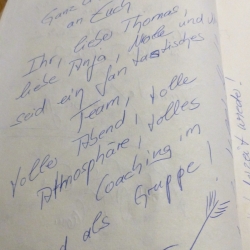 Ganz
an Euch
Ihr, liebe Thomas,
liebe Anja, und
seid ein fantastisches
Team, tolle
tolle Abend, tolles
Atmosphäre, tolles
Coaching im
als Gruppe!